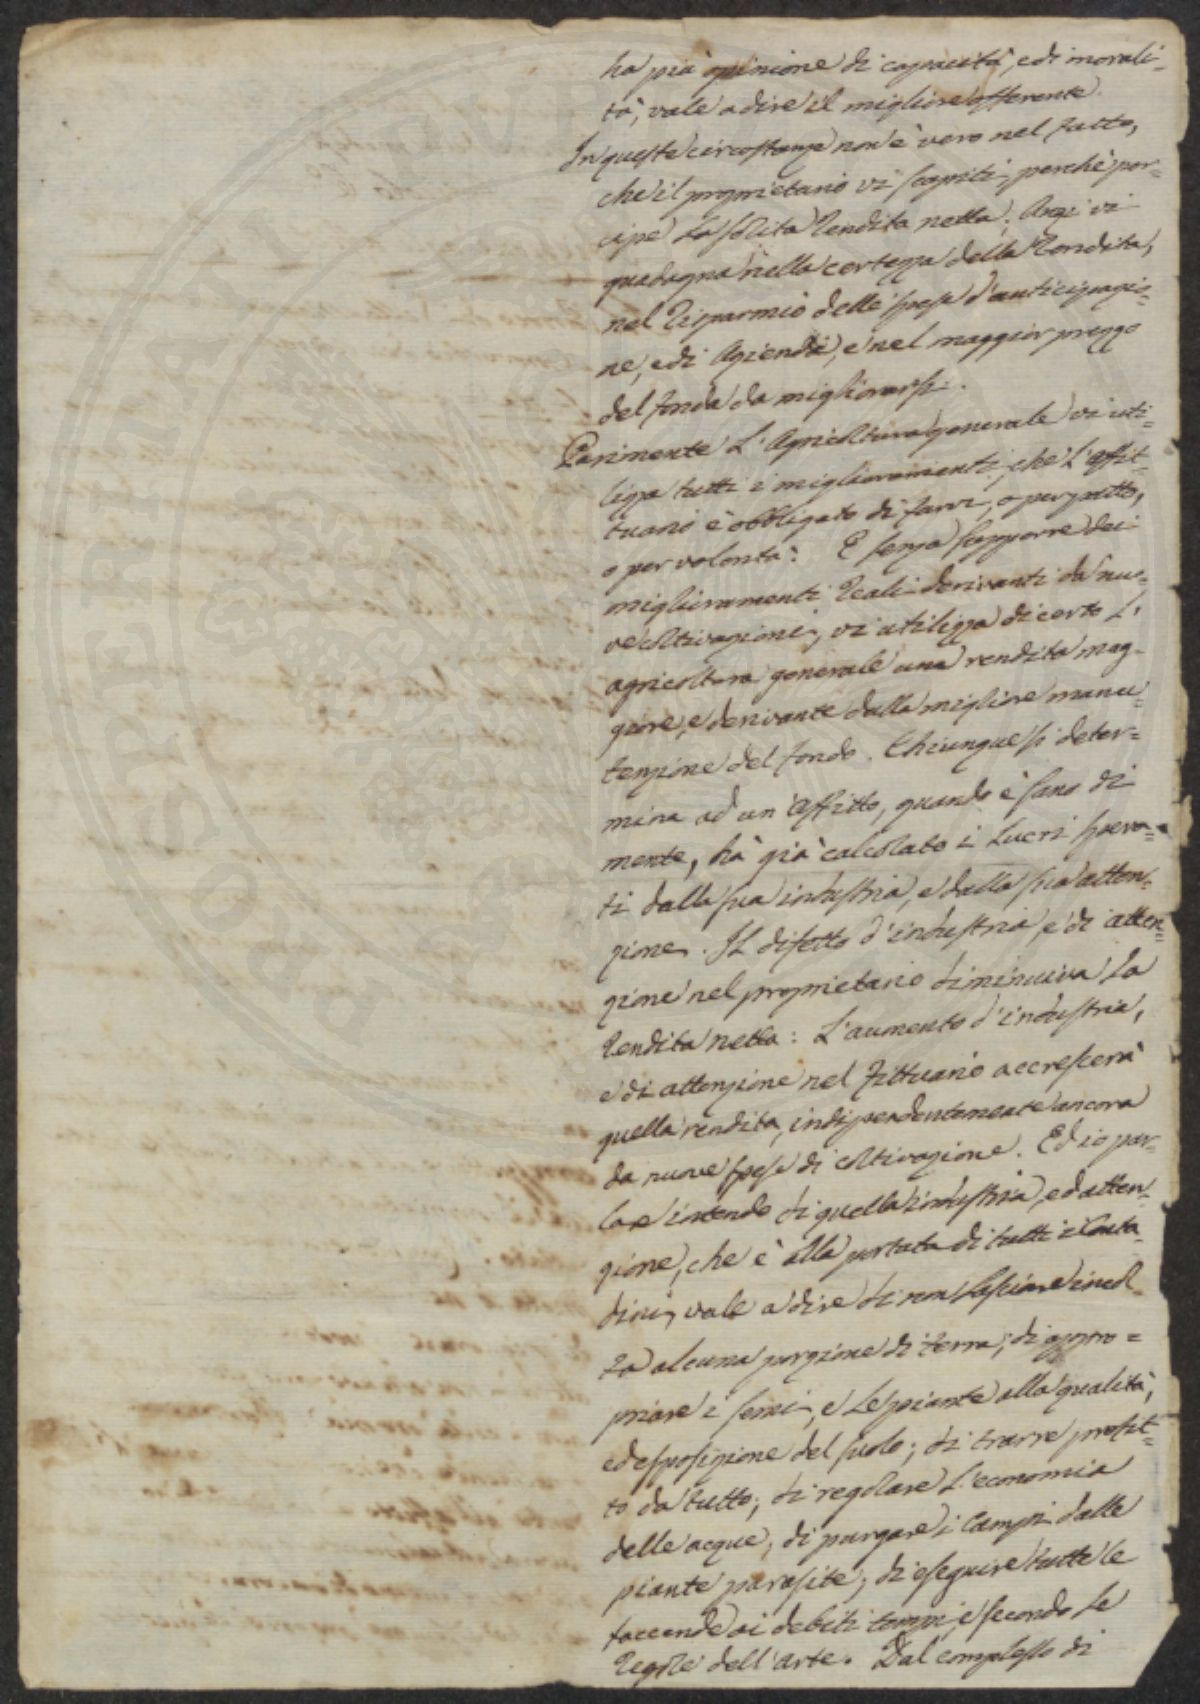 ha più opinione di capacità, e di morali=
tà, vale a dire il migliore offerente.
In queste circostanze non è vero nel fatto,
che il proprietario vi scapiti, perchè per=
cipe la solita rendita netta; Anzi vi
guadagna nella certezza della rendita,
nel risparmio delle spese d'anticipazio=
ne, e di Azienda, e nel maggior prezzo
del fondo da migliorarsi.
Parimente l'Agricoltura generale vi uti=
lizza tutti i miglioramenti, che l'affit=
tuario è obbligato di farvi, o per patto,
o per volontà: E senza supporre dei
miglioramenti reali derivanti da nuo=
ve coltivazioni, vi utilizza di certo l'
agricoltura generale una rendita mag=
giore, e derivante dalla migliore manu=
tenzione del fondo. Chiunque si deter=
mina ad un Affitto, quando è sano di
mente, hà già calcolato i lucri spera=
ti dalla sua industria, e dalla sua atten=
zione. Il difetto d'industria, e di atten=
zione nel proprietario diminuiva la
rendita netta: L'aumento d'industria,
e di attenzione nel fittuario accrescerà
quella rendita, indipendentemente ancora
da nuove spese di coltivazione. Ed io par=
lo e intendo di quella industria, ed atten=
zione, che è alla portata di tutti i Conta=
dini, vale a dire di non lasciare incol=
ta alcuna porzione di terra; di appro=
priare i semi, e le piante alla qualità,
ed esposizione del suolo; di trarre profit=
to da tutto; di regolare l'economia
delle acque; di purgare i Campi dalle
piante parasite; di eseguire tutte le
faccende ai debiti tempi, e secondo le
regole dell'Arte. Dal complesso di